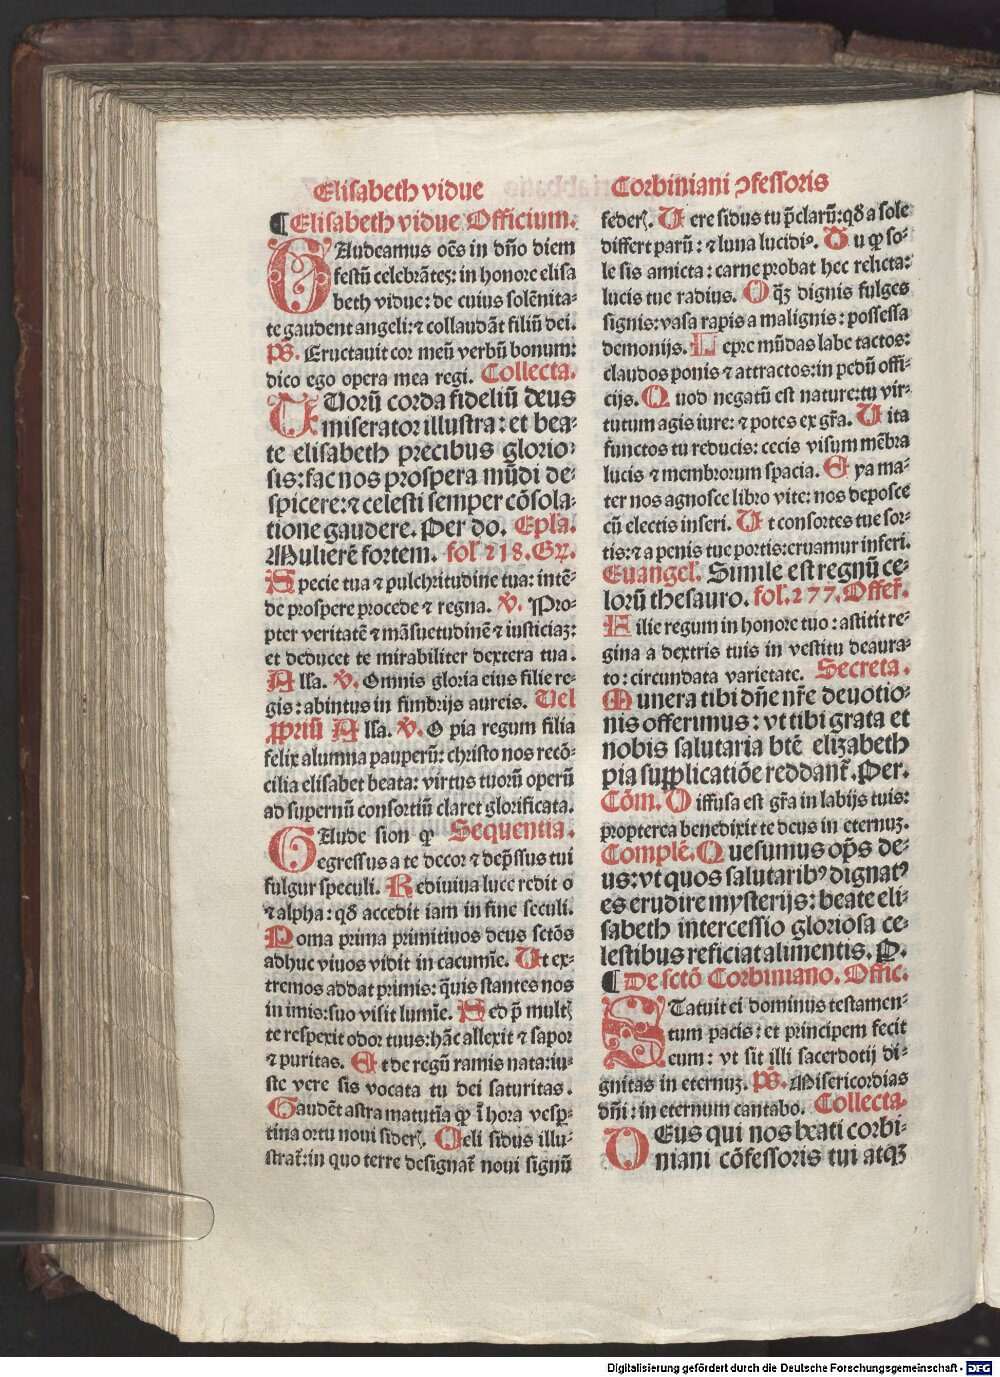 Elisabeth vidue
¶Elisabeth vidue Officium.
GAudeamus oēs in dño diem
festū celebrātes: in honore elisa
beth vidue: de cuius solēnita-
te gaudent angeli: ⁊ collaudāt filiū dei.
p̄s. Eructauit cor meū verbū bonum:
dico ego opera mea regi. Collecta.
TUorū corda fideliū deus
miserator illustra: et bea-
te elisabeth precibus glorio-
sis: fac nos prospera mūdi de-
spicere: ⁊ celesti semper cōsola-
tione gaudere. Per do. Epl'a.
Mulierē fortem. fol' 218. Gr̄.
Specie tua ⁊ pulchritudine tua: intē-
de prospere procede ⁊ regna. v̄. Pro-
pter veritatē ⁊ māsuetudinē ⁊ iusticiaꝫ:
et deducet te mirabiliter dextera tua.
Alla. v̄. Omnis gloria eius filie re-
gis: abintus in fimbrijs aureis. Uel
ꝓpriū Alla. v̄. O pia regum filia
felix alumna pauperū: christo nos recō-
cilia elisabet beata: virtus tuorū operū
ad supernū consortiū claret glorificata.
GAude sion ꝙ Sequentia.
egressus a te decor ⁊ dep̄ssus tui
fulgur speculi. Rediuiua luce redit o
⁊ alpha: qd̄ accedit iam in fine seculi.
Roma prima primitiuos deus sctōs
adhuc viuos vidit in cacumīe. Ut ex-
tremos addat primis: q̄uis stantes nos
in imis: suo visit lumīe. Sed p̄ multꝭ
te respexit odor tuus: hāc allexit ⁊ sapor
⁊ puritas. Et de regū ramis nata: iu-
ste vere sis vocata tu dei saturitas.
Gaudēt astra matutīa ꝙ ī hora vesꝑ-
tina ortu noui siderꝭ. Celi sidus illu-
strat̄: in quo terre designat̄ noui signū
Corbiniani ꝯfessoris
federꝭ. Uere sidus tu p̄clarū: qd̄ a sole
differt parū: ⁊ luna lucidiꝰ. Tu ꝙ so-
le sis amicta: carne probat hec relicta:
lucis tue radius. O qꝫ dignis fulges
signis: vasa rapis a malignis: possessa
demonijs. Lepre mūdas labe tactos:
claudos ponis ⁊ attractos: in pedū offi-
cijs. Quod negatū est nature: tu vir-
tutum agis iure: ⁊ potes ex gr̄a. Uita
functos tu reducis: cecis visum mēbra
lucis ⁊ membrorum spacia. Eya ma-
ter nos agnosce libro vite: nos deposce
cū electis inseri. Ut consortes tue sor-
tis: ⁊ a penis tue portis: eruamur inferi.
Euangel'. Simile est regnū ce-
lorū thesauro. fol'. 277. Offer̄.
Filie regum in honore tuo: astitit re-
gina a dextris tuis in vestitu deaura-
to: circundata varietate. Secreta.
Munera tibi dn̄e nr̄e deuotio-
nis offerimus: vt tibi grata et
nobis salutaria btē elizabeth
pia supplicatiōe reddant̄. Per.
Cōm. Diffusa est gr̄a in labijs tuis:
propterea benedixit te deus in eternuꝫ.
Complē. Quesumus op̄s de-
us: vt quos salutaribꝰ dignatꝰ
es erudire mysterijs: beate eli-
sabeth intercessio gloriosa ce-
lestibus reficiat alimentis. P.
¶De sctō Corbiniano. Offic.
STatuit ei dominus testamen-
tum pacis: et principem fecit
eum: vt sit illi sacerdotij di-
gnitas in eternuꝫ. p̄s. Misericordias
dn̄i: in eternum cantabo. Collecta.
DEus qui nos beati corbi-
niani cōfessoris tui atqꝫ
Digitalisierung gefördert durch die Deutsche Forschungsgemeinschaft - DFG